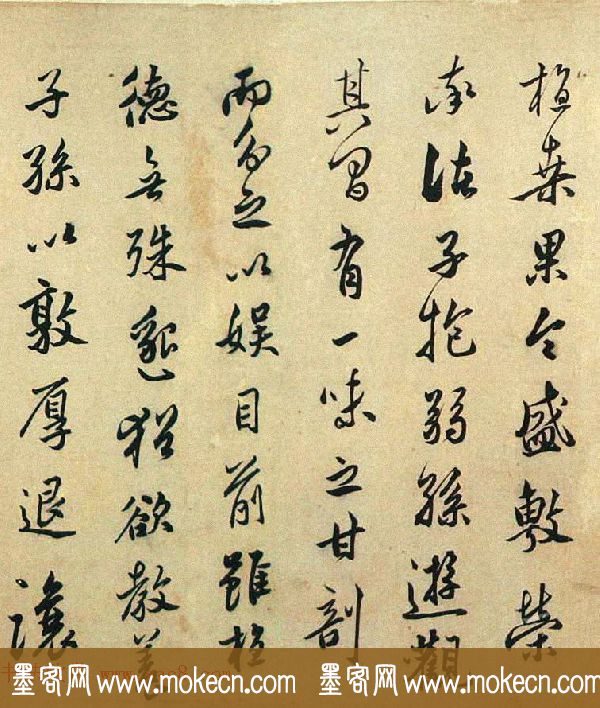 植桑果今盛敷榮
率諸子抱弱孫遊觀
其間有一味之甘剖
而分之以娛目前雖植
德無殊邈猶欲教養
子孫以敦厚退讓
墨客网 www.mokecn.com 墨客网 www.mokecn.com